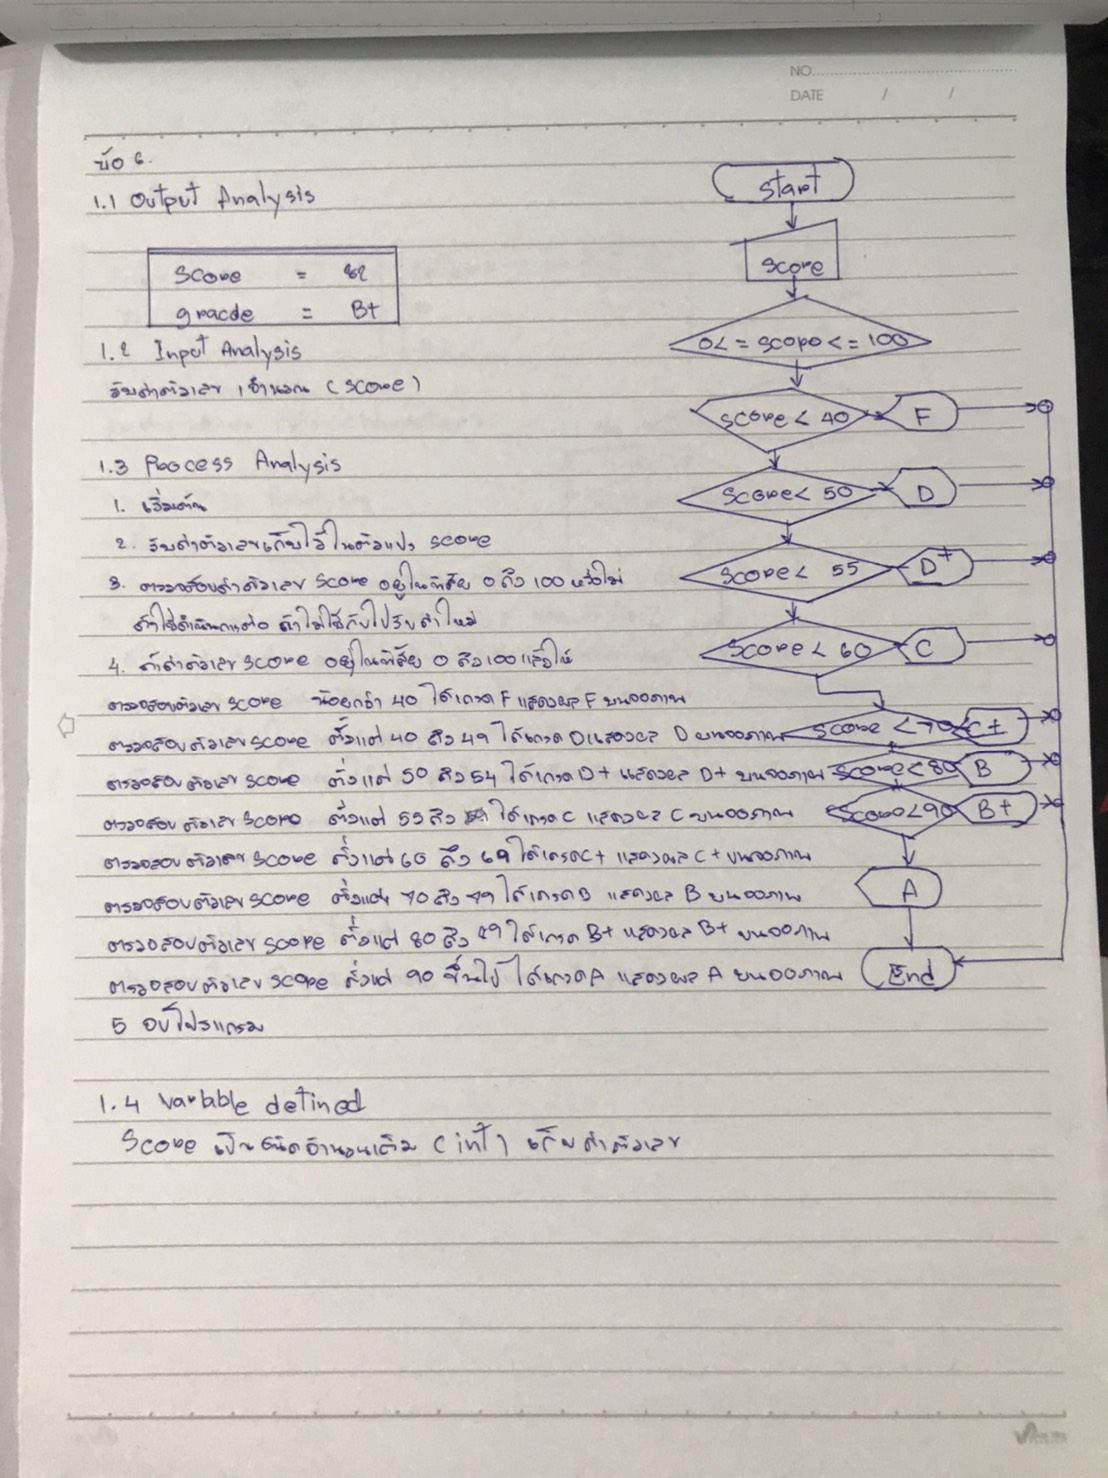 NO.
DATE / /
ข้อ 6.
1.1 Output Analysis
Score = 82
gracde = B+
1.2 Input Analysis
รับค่าตัวเลข 1 จำนวน (Score)
1.3 Process Analysis
1. เริ่มต้น
2. รับค่าตัวเลขเก็บไว้ในตัวแปร score
3. ตรวจสอบค่าตัวเลข score อยู่ในพิสัย 0 ถึง 100 หรือไม่
ถ้าใช่ดำเนินการต่อ ถ้าไม่ใช่กลับไปรับค่าใหม่
4. ถ้าค่าตัวเลข score อยู่ในพิสัย 0 ถึง 100 แล้วให้
ตรวจสอบตัวเลข score น้อยกว่า 40 ได้เกรด F แสดงผล F บนจอภาพ
ตรวจสอบตัวเลข score ตั้งแต่ 40 ถึง 49 ได้เกรด D แสดงผล D บนจอภาพ
ตรวจสอบตัวเลข score ตั้งแต่ 50 ถึง 54 ได้เกรด D+ แสดงผล D+ บนจอภาพ
ตรวจสอบตัวเลข score ตั้งแต่ 55 ถึง ได้เกรด C แสดงผล C บนจอภาพ
ตรวจสอบตัวเลข score ตั้งแต่ 60 ถึง 69 ได้เกรด C+ แสดงผล C+ บนจอภาพ
ตรวจสอบตัวเลข score ตั้งแต่ 70 ถึง 79 ได้เกรด B แสดงผล B บนจอภาพ
ตรวจสอบตัวเลข score ตั้งแต่ 80 ถึง 89 ได้เกรด B+ แสดงผล B+ บนจอภาพ
ตรวจสอบตัวเลข score ตั้งแต่ 90 ขึ้นไป ได้เกรด A แสดงผล A บนจอภาพ
5 จบโปรแกรม
1.4 Variable defined
Score เป็นชนิดจำนวนเต็ม (int) เก็บค่าตัวเลข
Start
Score
0<=score<=100
score < 40
F
Score < 50
D
Score < 55
D+
Score < 60
C
Score < 70
C+
Score < 80
B
Score < 90
B+
A
End